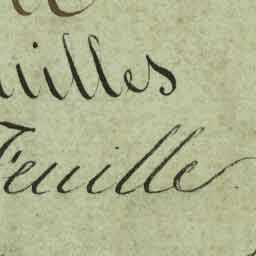 uilles
Feuille